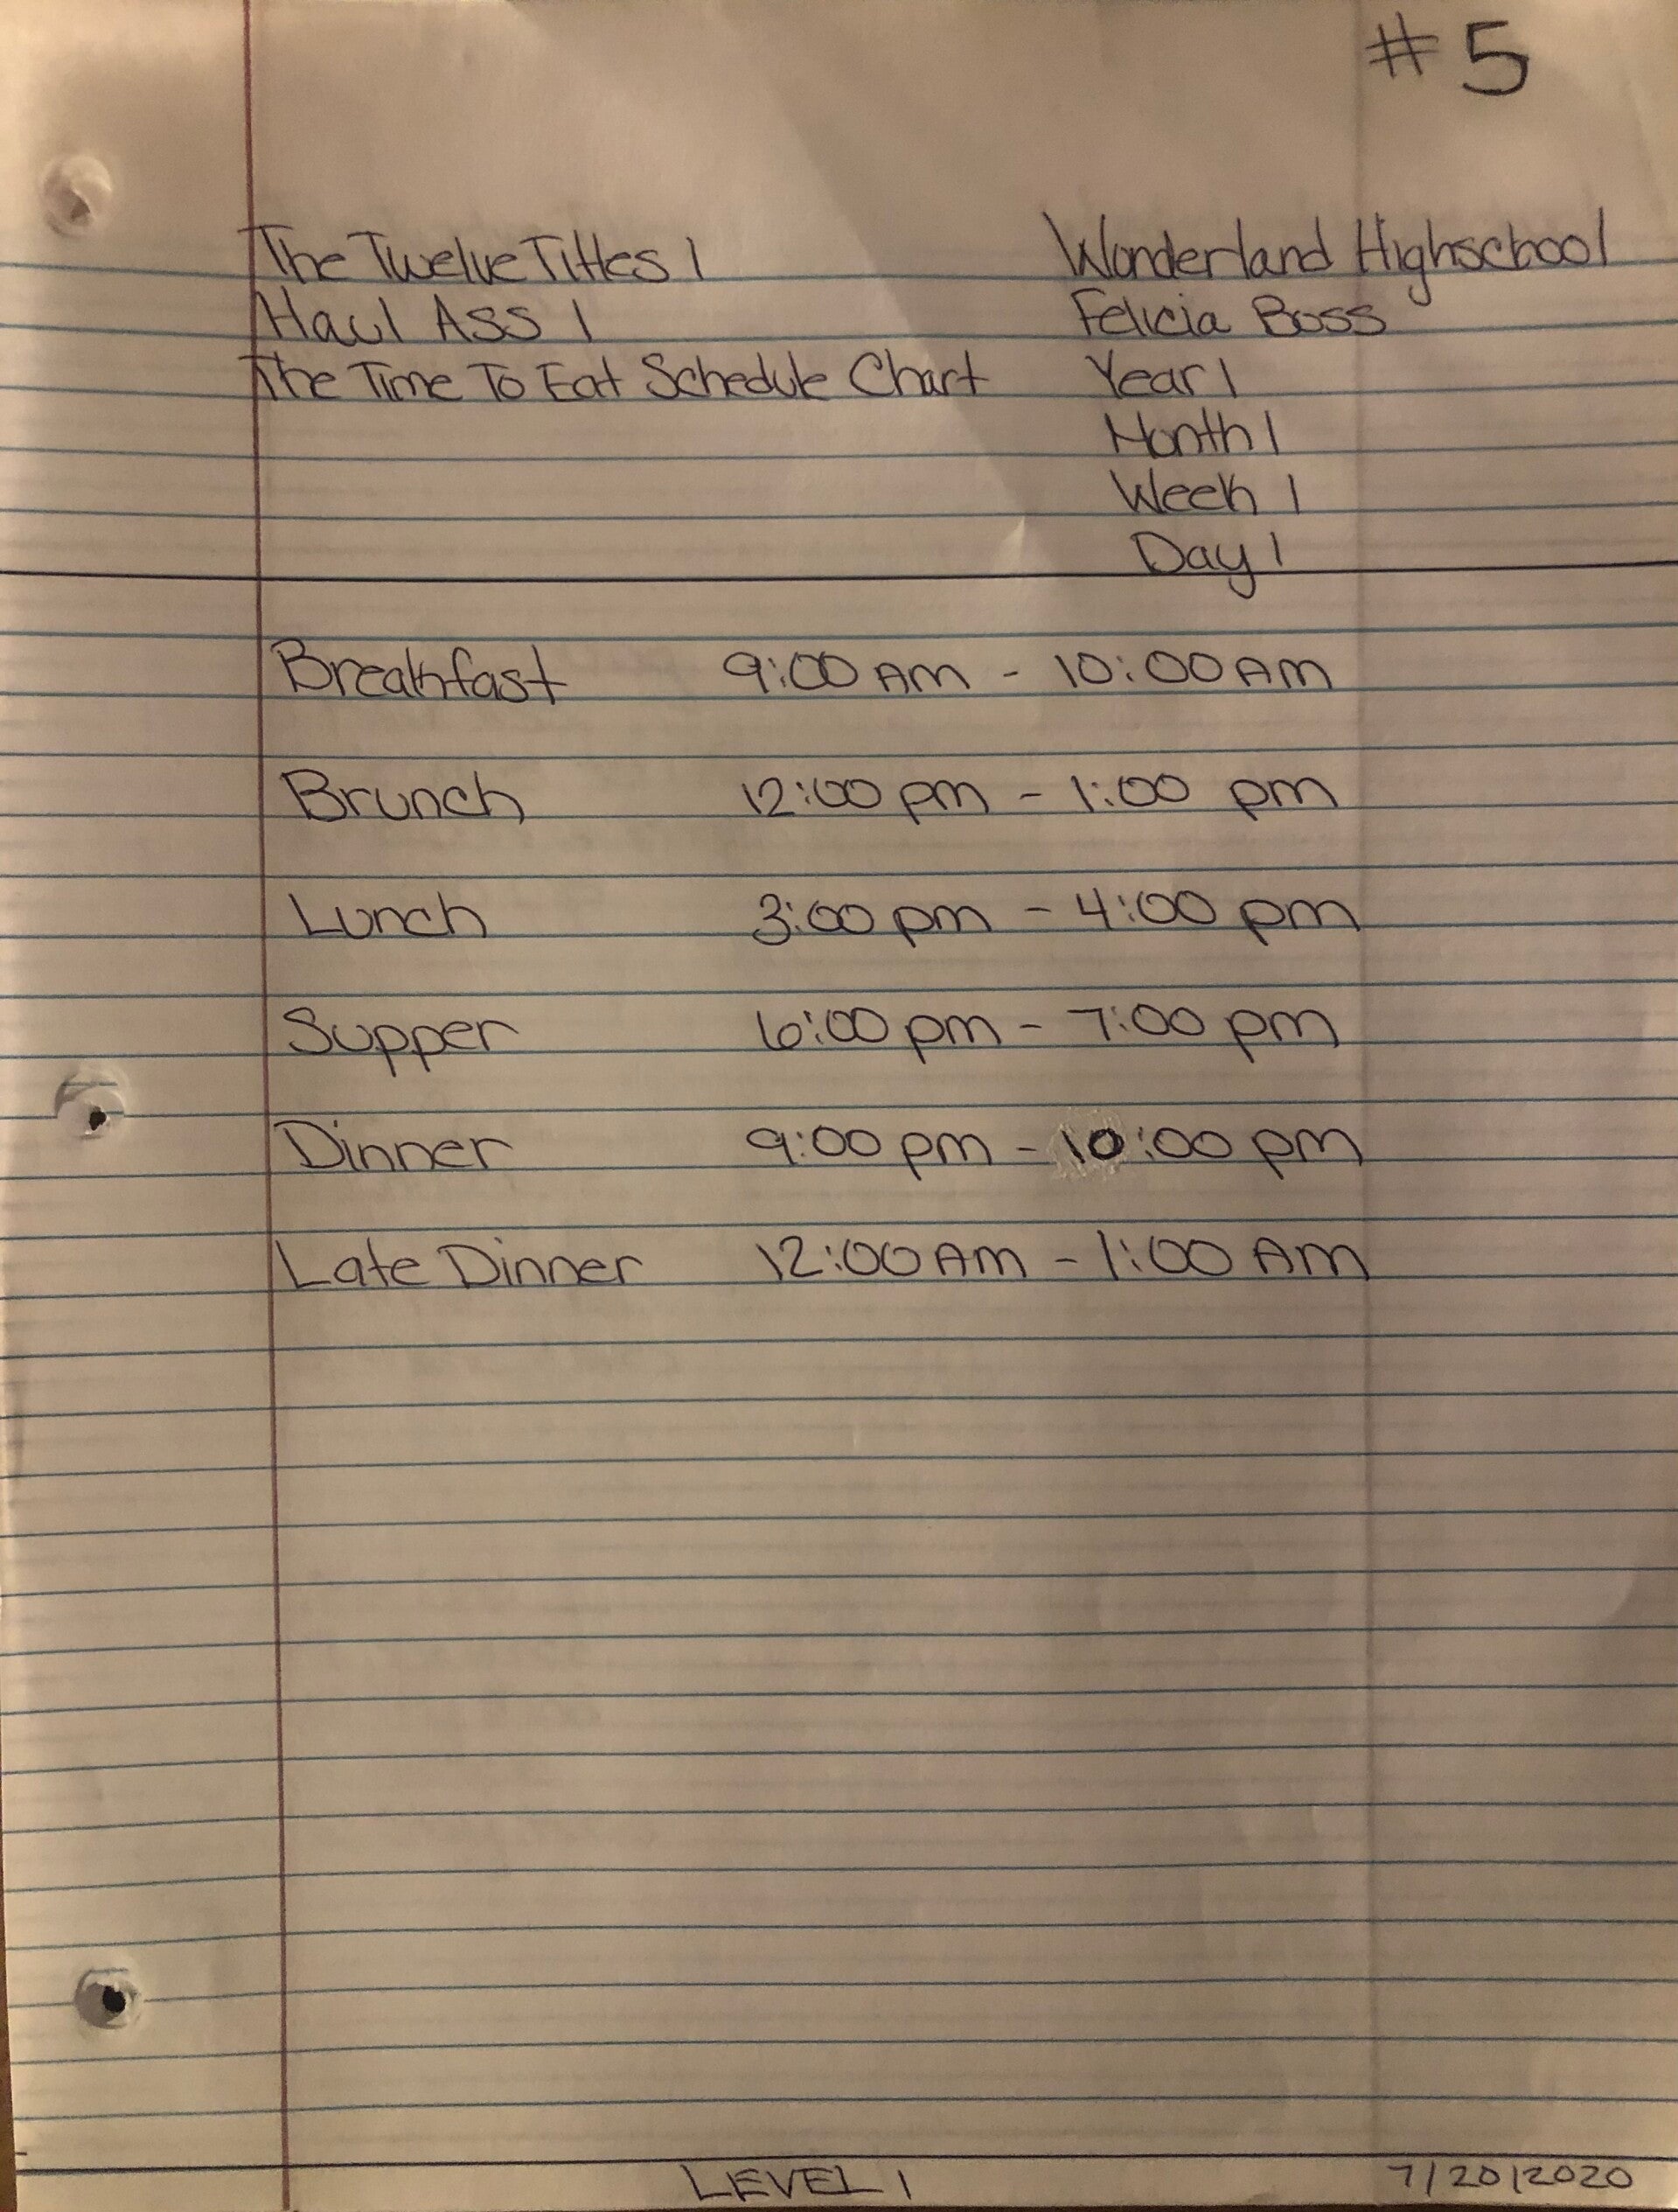 #5
The Twelve Titles 1 Wonderland Highschool
Haul Ass 1 Felicia Boss
The Time To Eat Schedule Chart Year 1
Month 1
Week 1
Day 1
Breakfast 9:00 AM - 10:00 AM
Brunch 12:00 pm - 1:00 pm
Lunch 3:00 pm - 4:00 pm
Supper 6:00 pm - 7:00 pm
Dinner 9:00 pm - 10:00 pm
Late Dinner 12:00 AM - 1:00 AM
LEVEL 1 7/20/2020